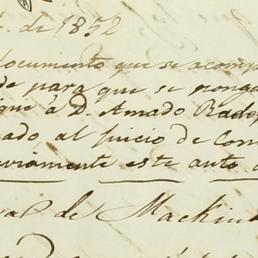 de 1852
documento que se acomp
de para que se ponga
que à D. Amado
ado al juicio de Con
viamente este auto
de Machin